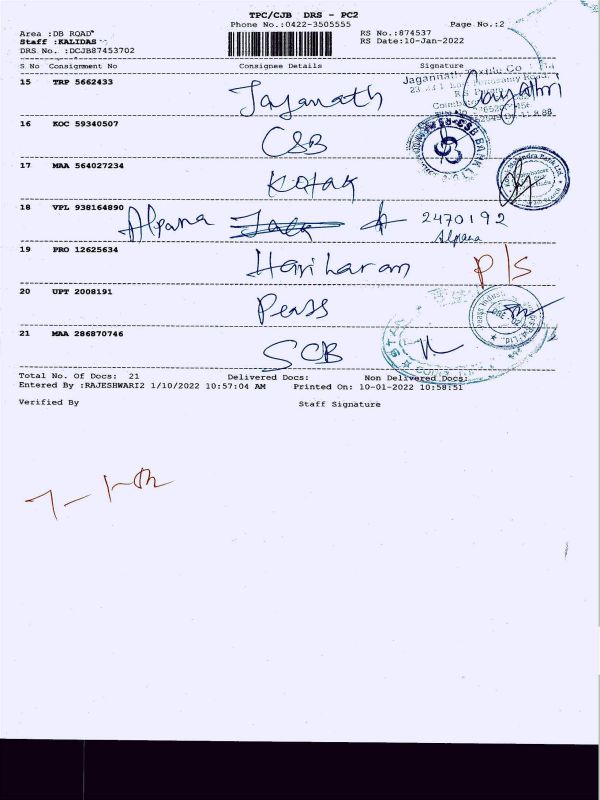 TPC/CJB DRS - PC2
Phone No.:0422-3505555 Page No.:2
Area :DB ROAD RS No.:874537
Staff :KALIDAS RS Date:10-Jan-2022
DRS No. :DCJB87453702
S No Consignment No Consignee Details Signature
15 TRP 5662433 Jaganath Gayathri
Jagannath Textile Co
16 KOC 59340507 CSB
CSB BANK LTD
17 MAA 564027234 Kotak
18 VPL 938164890 Alpana 2470192
Alpana
19 PRO 12625634 Hariharam P/S
20 UPT 2008191 Peass
21 MAA 286870746 SCB
Total No. Of Docs: 21 Delivered Docs: Non Delivered Docs:
Entered By :RAJESHWARI2 1/10/2022 10:57:04 AM Printed On: 10-01-2022 10:58:51
Verified By Staff Signature